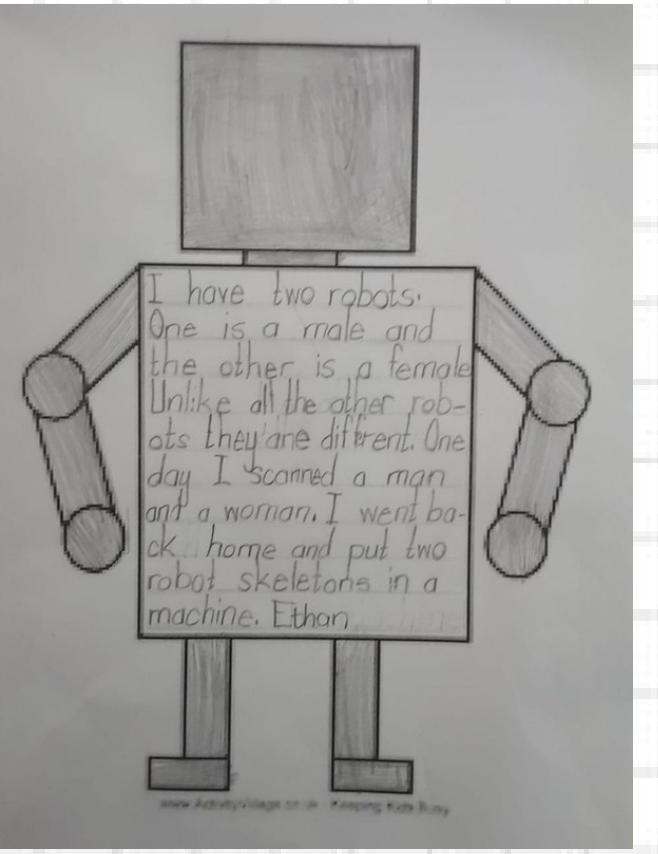 I have two robots.
One is a male and
the other is a female
Unlike all the other rob-
ots they are different. One
day I scanned a man
and a woman. I went ba-
ck home and put two
robot skeletons in a
machine. Ethan
www.ActivityVillage.co.uk - Keeping Kids Busy